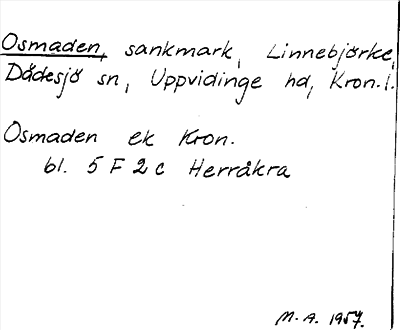 Osmaden, sankmark, Linnebjörke,
Dädesjö sn, Uppvidinge hd, Kron. l.
Osmaden ek Kron.
bl. 5 F 2 c Herråkra
M. A. 1957.